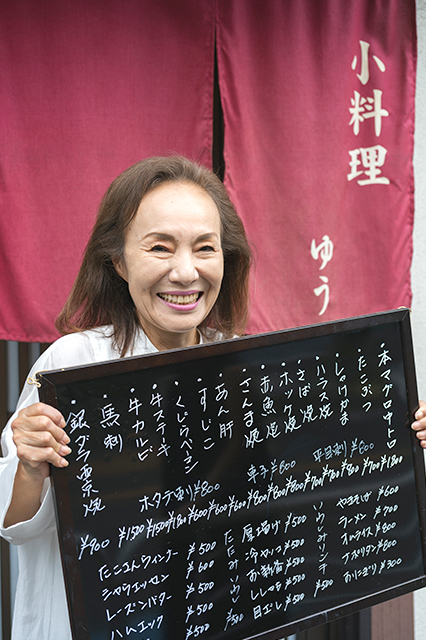 小料理
ゆう
・本マグロ中トロ
・たこぶつ
・しゃけかま
・ハラス焼
・さば焼
・ホッケ焼
・赤魚焼
・さんま焼
・あん肝
・すじこ
・くじらベーコン
・牛ステーキ
・牛カルビ
・馬刺
・銀ダラ西京焼
平目刺り ¥600
ホタテ刺り ¥800
¥1800
¥1700
¥700
¥700
¥700
¥800
¥800
¥600
¥600
¥600
¥1800
¥1500
¥1500
¥900
やきそば ¥600
ラーメン ¥700
オムライス ¥800
ナポリタン ¥800
おにぎり ¥300
ソウメンチャンプ ¥500
厚揚げ ¥500
冷やっこ ¥500
お新香 ¥500
ししゃも ¥500
目玉 ¥500
¥500
たこさんウィンナー ¥500
シャウエッセン ¥600
レーズンバター ¥500
ハムエッグ ¥500